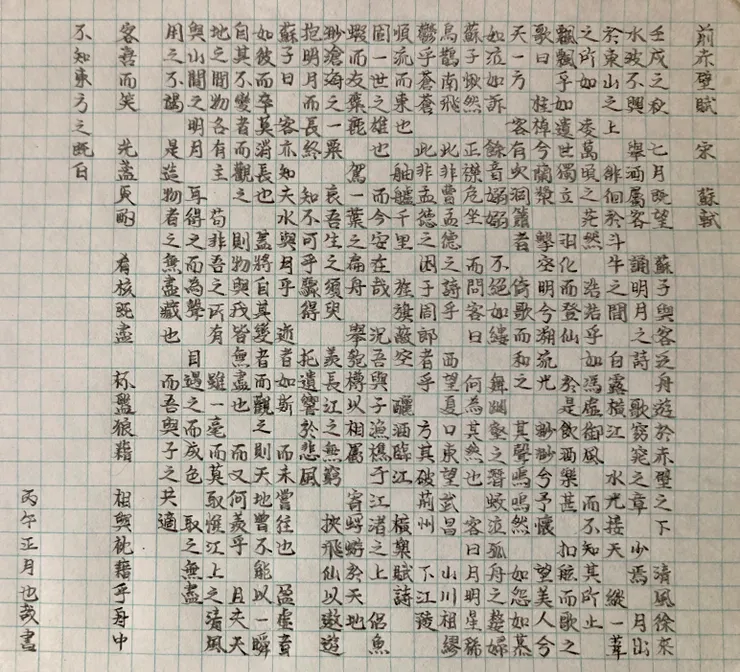 前赤壁賦 宋 蘇軾
壬戌之秋 七月既望 蘇子與客泛舟遊於赤壁之下 清風徐來
水波不興 舉酒屬客 誦明月之詩 歌窈窕之章 少焉 月出
於東山之上 徘徊於斗牛之間 白露橫江 水光接天 縱一葦
之所如 凌萬頃之茫然 浩浩乎 如馮虛御風 而不知其所止
飄飄乎如遺世獨立 羽化而登仙 於是飲酒樂甚 扣舷而歌之
歌曰 桂棹兮蘭槳 擊空明兮溯流光 渺渺兮予懷 望美人兮
天一方 客有吹洞簫者 倚歌而和之 其聲嗚嗚然 如怨如慕
如泣如訴 餘音嫋嫋 不絕如縷 舞幽壑之潛蛟 泣孤舟之嫠婦
蘇子愀然 正襟危坐 而問客曰 何為其然也 客曰 月明星稀
烏鵲南飛 此非曹孟德之詩乎 西望夏口 東望武昌 山川相繆
鬱乎蒼蒼 此非孟德之困于周郎者乎 方其破荊州 下江陵
順流而東也 舳艫千里 旌旗蔽空 釃酒臨江 橫槊賦詩
固一世之雄也 而今安在哉 況吾與子漁樵于江渚之上 侶魚
蝦而友麋鹿 駕一葉之扁舟 舉匏樽以相屬 寄蜉蝣於天地
渺滄海之一粟 哀吾生之須臾 羨長江之無窮 挾飛仙以遨遊
抱明月而長終 知不可乎驟得 托遺響於悲風
蘇子曰 客亦知夫水與月乎 逝者如斯 而未嘗往也 盈虛者
如彼 而卒莫消長也 蓋將自其變者而觀之 則天地曾不能以一瞬
自其不變者而觀之 則物與我皆無盡也 而又何羨乎 且夫天
地之間 物各有主 苟非吾之所有 雖一毫而莫取 惟江上之清風
與山間之明月 耳得之而為聲 目遇之而成色 取之無盡
用之不竭 是造物者之無盡藏也 而吾與子之共適
客喜而笑 洗盞更酌 肴核既盡 杯盤狼藉 相與枕藉乎舟中
不知東方之既白
丙午正月也哉書